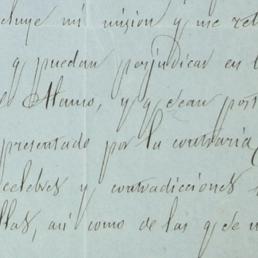 cluye mi mision y me ret
q puedan perjudicar en l
el Mamo, y q sean post
presentado por la contraria
celebres y contradicciones
llas, asi como de las q de m